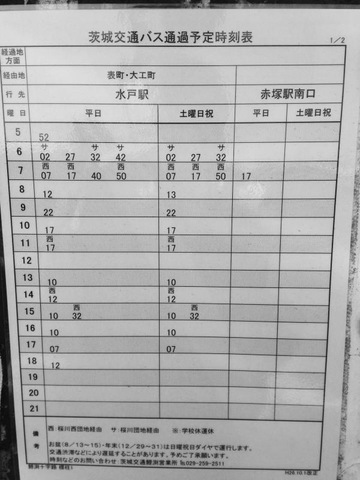 茨城交通バス通過予定時刻表
1/2
経過地方面
経由地 表町・大工町
行先 水戸駅 赤塚駅南口
曜日 平日 土曜日祝 平日 土曜日祝
5 52
6 サ02 27 サ32 サ42 サ02 27 サ32
7 西07 西17 西40 西50 西07 西17 西50 17
8 12 13
9 22 22
10 17 17
11 西17 西17
12
13 10 10
14 西12 西12
15 10 西32 10 西32
16 10 10
17 07 07
18 12
19
20
21
備考
西:桜川西団地経由 サ:桜川団地経由 ※:学校休運休
お盆(8/13~15)・年末(12/29~31)は日曜祝日ダイヤで運行します。
交通渋滞などにより遅延することがあります。予めご了承願います。
時刻などのお問い合わせ:茨城交通
℡029-259-2511
H26.10.1改正